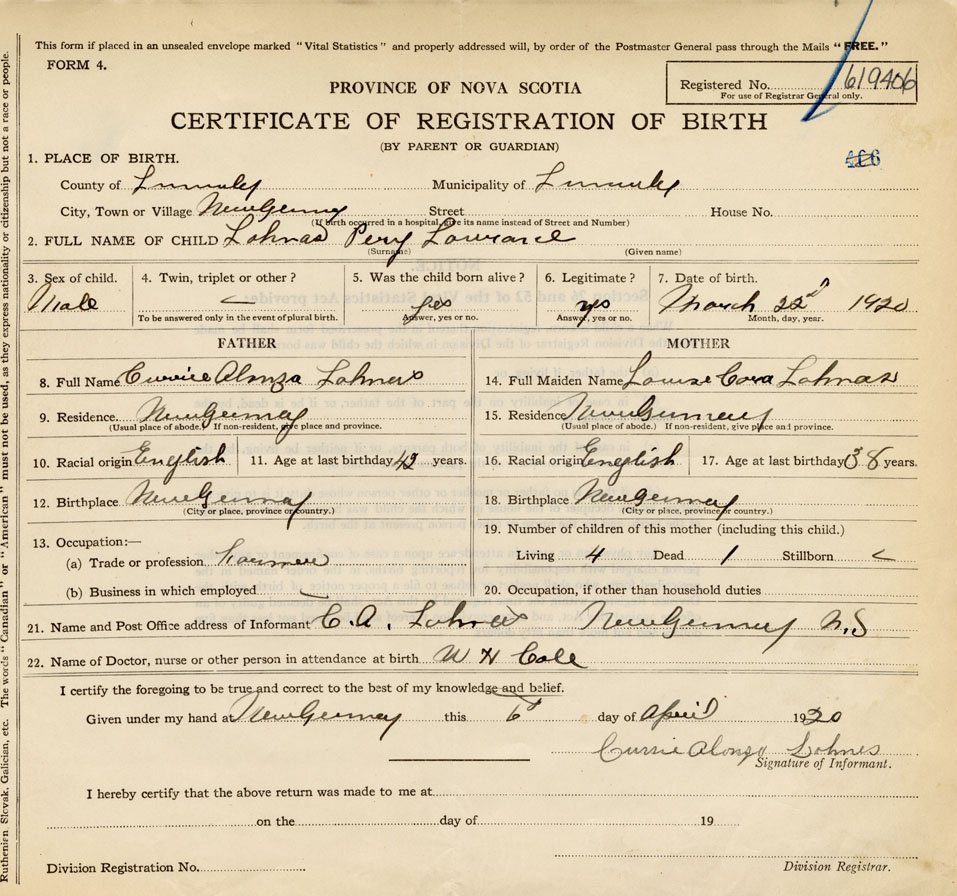 This form if placed in an unsealed envelope marked "Vital Statistics" and properly addressed will, by order of the Postmaster General pass through the Mails "FREE."
FORM 4.
Registered No. 619406
For use of Registrar General only.
PROVINCE OF NOVA SCOTIA
CERTIFICATE OF REGISTRATION OF BIRTH
(BY PARENT OR GUARDIAN)
1. PLACE OF BIRTH.
County of Municipality of
City, Town or Village New Germany Street House No.
(If birth occurred in a hospital, give its name instead of Street and Number)
2. FULL NAME OF CHILD Lohnas Pery Lowrance
(Surname) (Given name)
3. Sex of child. 4. Twin, triplet or other? 5. Was the child born alive? 6. Legitimate? 7. Date of birth.
Male — yes yes March 22nd 1920
To be answered only in the event of plural birth. Answer, yes or no. Answer, yes or no. Month, day, year.
FATHER MOTHER
8. Full Name Alonza Lohnes 14. Full Maiden Name Louise Cora Lohnas
9. Residence. New Germany 15. Residence New Germany
(Usual place of abode.) If non-resident, give place and province. (Usual place of abode.) If non-resident, give place and province.
10. Racial origin English 11. Age at last birthday 42 years. 16. Racial origin English 17. Age at last birthday 38 years.
12. Birthplace New Germany 18. Birthplace New Germany
(City or place, province or country.) (City or place, province or country.)
19. Number of children of this mother (including this child.)
13. Occupation:—
(a) Trade or profession Living 4 Dead 1 Stillborn
(b) Business in which employed 20. Occupation, if other than household duties
21. Name and Post Office address of Informant C. A. Lohnes New Germany N.S
22. Name of Doctor, nurse or other person in attendance at birth W H Cole
I certify the foregoing to be true and correct to the best of my knowledge and belief.
Given under my hand at New Germany this 6 day of April 1920
Currie Alonzo Lohnes
Signature of Informant.
I hereby certify that the above return was made to me at
on the day of 19
Division Registration No. Division Registrar.
Ruthenian, Slovak, Galician, etc. The words "Canadian" or "American" must not be used, as they express nationality or citizenship but not a race or people.